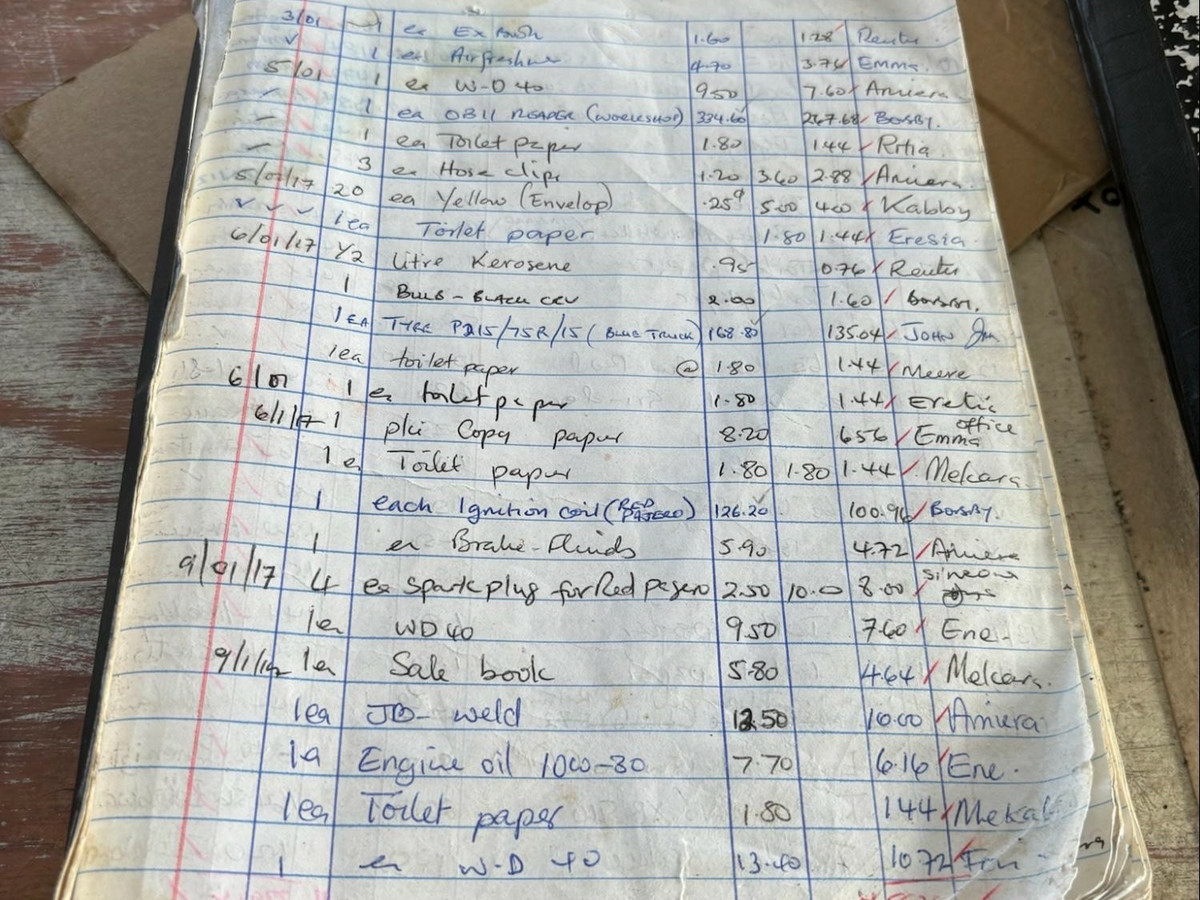 3/01 1 ea Ex Book 1.60 1.28 Reutu
✓ 1 ea Airfreshner 4.70 3.76 Emma.
5/01 1 ea W-D 40 9.50 7.60 Amiera
1 ea OB11 READER (WORKSHOP) 334.60 267.68 Borsby.
1 ea Toilet paper 1.80 1.44 Ritia
3 ea Hose clips 1.20 3.60 2.88 Amiera
5/01/17 20 ea Yellow (Envelop) .25 5.00 4.00 Kabboy
✓ ✓ ✓ 1ea Toilet paper 1.80 1.44 Eresia
6/01/17 1/2 litre Kerosene .95 0.76 Reutu
1 BULB - BLACK CRV 2.00 1.60
1EA TYRE P215/75R/15 (BLUE TRUCK) 168.80 135.04 JOHN
1ea toilet paper @ 1.80 1.44 Meere
6/01 1 ea toilet paper 1.80 1.44 Eretic
6/1/17 1 pkt Copy paper 8.20 6.56 Emma office
1 ea Toilet paper 1.80 1.80 1.44 Mekara
1 each Ignition coil (RED PAJERO) 126.20 100.96 Borsby.
1 ea Brake-Fluids 5.90 4.72 Amiera
9/01/17 4 ea Spark plug for Red pagero 2.50 10.00 8.00 simeon
1ea WD40 9.50 7.60 Ene.
9/1/17 1ea Sale book 5.80 4.64 Mekara.
1ea JB- weld 12.50 10.00 Amiera
1a Engine oil 1000-30 7.70 6.16 Ene.
1ea Toilet paper 1.80 1.44 Mekab
1 ea W-D 40 13.40 10.72